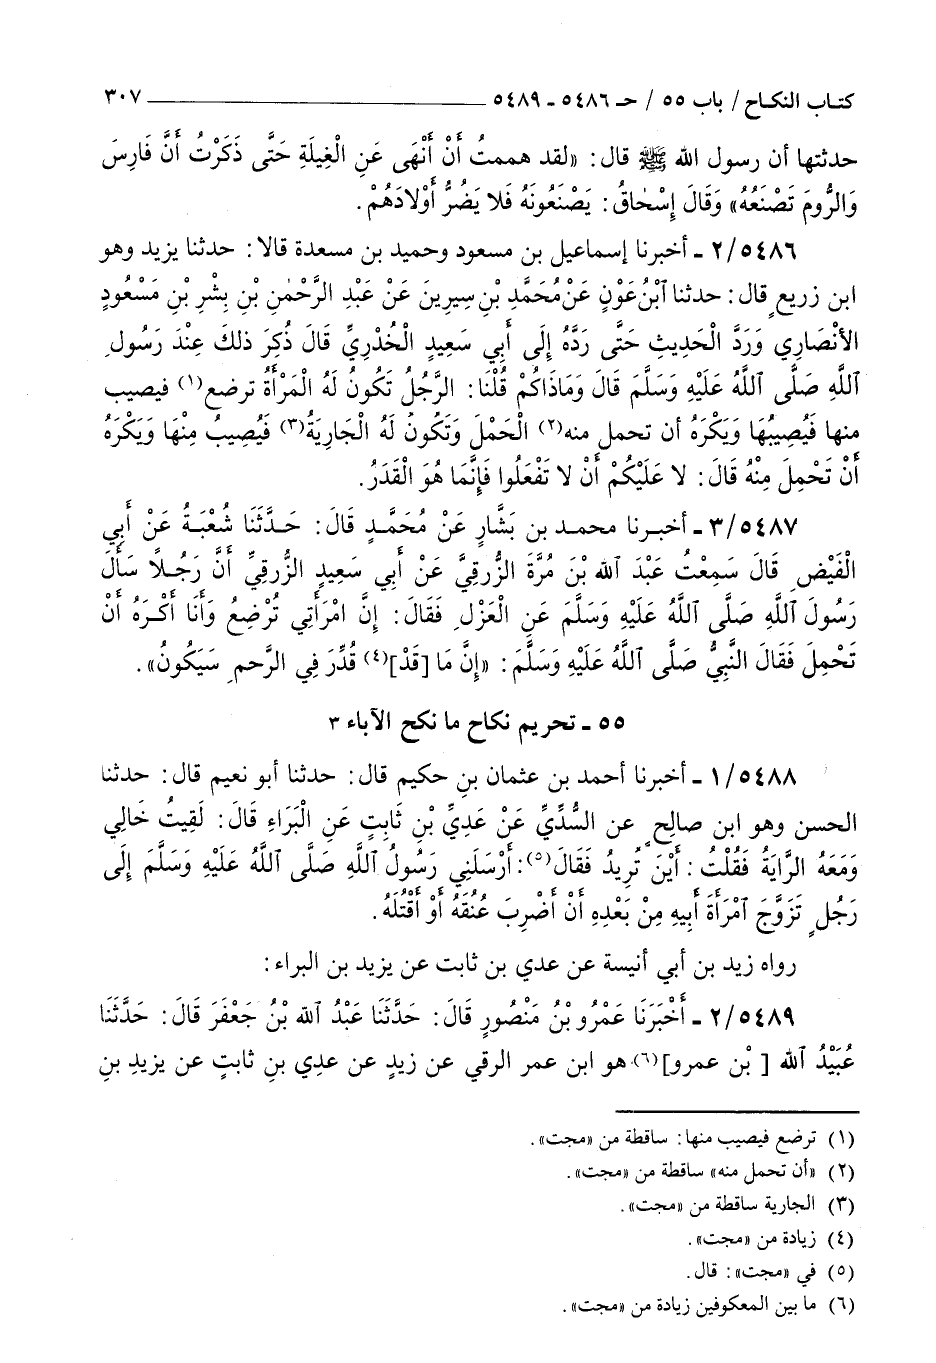 كتاب النكاح / باب ٥٥ / حـ ٥٤٨٦ - ٥٤٨٩ ــــــــــــــــــ ٣٠٧
حدثتها أن رسول الله ﷺ قال: «لقد هممتُ أَنْ أَنْهَى عَنِ الْغِيلَةِ حَتَّى ذَكَرْتُ أَنَّ فَارِسَ
وَالرُّومَ تَصْنَعُهُ» وَقَالَ إِسْحَاقُ: يَصْنَعُونَهُ فَلَا يَضُرُّ أَوْلَادَهُمْ.
٢/٥٤٨٦ - أخبرنا إسماعيل بن مسعود وحميد بن مسعدة قالا: حدثنا يزيد وهو
ابن زريع قال: حدثنا ٱبْنُ عَوْنٍ عَنْ مُحَمَّدِ بْنِ سِيرِينَ عَنْ عَبْدِ الرَّحْمٰنِ بْنِ بِشْرِ بْنِ مَسْعُودٍ
الأَنْصَارِي وَرَدَّ الْحَدِيثِ حَتَّى رَدَّهُ إِلَى أَبِي سَعِيدٍ الْخُدْرِيِّ قَالَ ذُكِرَ ذلكَ عِنْدَ رَسُولِ
ٱللَّهِ صَلَّى ٱللَّهُ عَلَيْهِ وَسَلَّمَ قَالَ وَمَاذَاكُمْ قُلْنَا: الرَّجُلُ تَكُونُ لَهُ الْمَرْأَةُ ترضع(١) فيصيب
منها فَيُصِيبُهَا وَيَكْرَهُ أن تحمل منه(٢) الْحَمْلَ وَتَكُونُ لَهُ الْجَارِيَةُ(٣) فَيُصِيبُ مِنْهَا وَيَكْرَهُ
أَنْ تَحْمِلَ مِنْهُ قَالَ: لا عَلَيْكُمْ أَنْ لا تَفْعَلُوا فَإِنَّمَا هُوَ الْقَدَرُ.
٣/٥٤٨٧ - أخبرنا محمد بن بَشَّارٍ عَنْ مُحَمَّدٍ قَالَ: حَدَّثَنَا شُعْبَةُ عَنْ أَبِي
الْفَيْضِ قَالَ سَمِعْتُ عَبْدَ الله بْنَ مُرَّةَ الزُّرَقِيَّ عَنْ أَبِي سَعِيدٍ الزُّرَقِيِّ أَنَّ رَجُلاً سَأَلَ
رَسُولَ ٱللَّهِ صَلَّى ٱللَّهُ عَلَيْهِ وَسَلَّمَ عَنِ الْعَزْلِ فَقَالَ: إِنَّ امْرَأَتِي تُرْضِعُ وَأَنَا أَكْرَهُ أَنْ
تَحْمِلَ فَقَالَ النَّبِيُّ صَلَّى ٱللَّهُ عَلَيْهِ وَسَلَّمَ: «إِنَّ مَا [قَدْ](٤) قُدِّرَ فِي الرَّحِمِ سَيَكُونُ».
٥٥ - تحريم نكاح ما نكح الآباء ٣
١/٥٤٨٨ - أخبرنا أحمد بن عثمان بنِ حكيم قال: حدثنا أبو نعيم قال: حدثنا
الحسن وهو ابن صالحٍ عن السُّدِّيِّ عَنْ عَدِيِّ بْنِ ثَابِتٍ عَنِ الْبَرَاءِ قَالَ: لَقِيتُ خَالِي
وَمَعَهُ الرَّايَةُ فَقُلْتُ: أَيْنَ تُرِيدُ فَقَالَ(٥): أَرْسَلَنِي رَسُولُ ٱللَّهِ صَلَّى ٱللَّهُ عَلَيْهِ وَسَلَّمَ إِلَى
رَجُلٍ تَزَوَّجَ ٱمْرَأَةَ أَبِيهِ مِنْ بَعْدِهِ أَنْ أَضْرِبَ عُنُقَهُ أَوْ أَقْتُلَهُ.
رواه زيد بن أبي أنيسة عن عدي بن ثابت عن يزيد بن البراء:
٢/٥٤٨٩ - أَخْبَرَنَا عَمْرُو بْنُ مَنْصُورٍ قَالَ: حَدَّثَنَا عَبْدُ الله بْنُ جَعْفَرَ قَالَ: حَدَّثَنَا
عُبَيْدُ الله [ بْن عمرو](٦) هو ابن عمر الرقي عن زيدٍ عن عدِي بنِ ثابتٍ عن يزيدِ بنِ
(١) ترضع فيصيب منها: ساقطة من «مجت».
(٢) «أن تحمل منه» ساقطة من «مجت».
(٣) الجارية ساقطة من «مجت».
(٤) زيادة من «مجت».
(٥) في «مجت»: قال.
(٦) ما بين المعكوفين زيادة من «مجت».